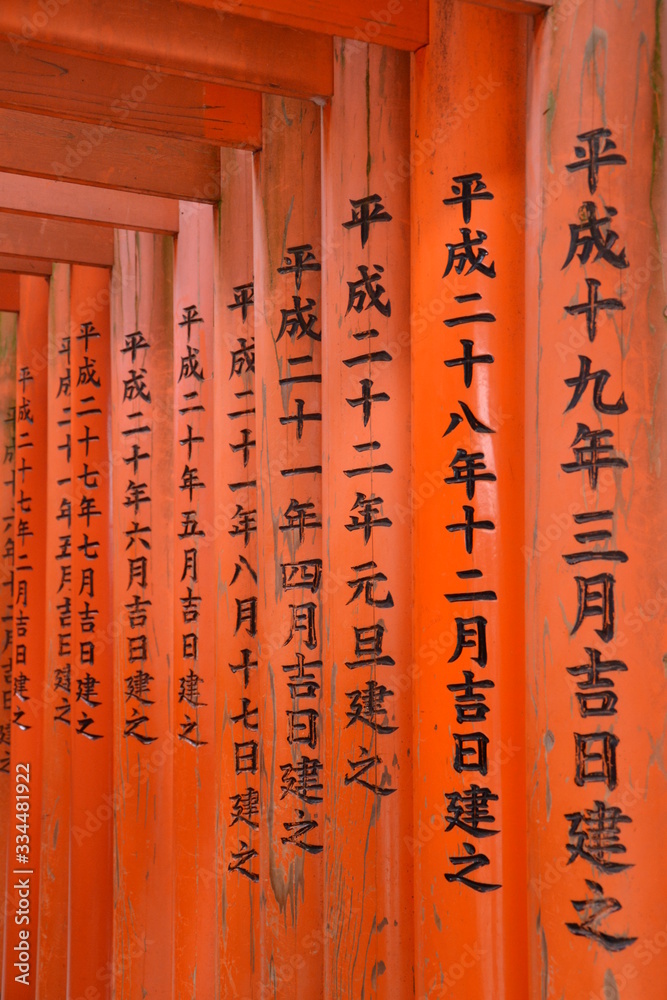 平成十九年三月吉日建之
平成二十八年十二月吉日建之
平成二十二年元旦建之
平成二十一年四月吉日建之
平成二十一年八月十七日建之
平成二十年五月吉日建之
平成二十年六月吉日建之
平成二十七年七月吉日建之
平成二十七年二月吉日建之
Adobe Stock | #334481922